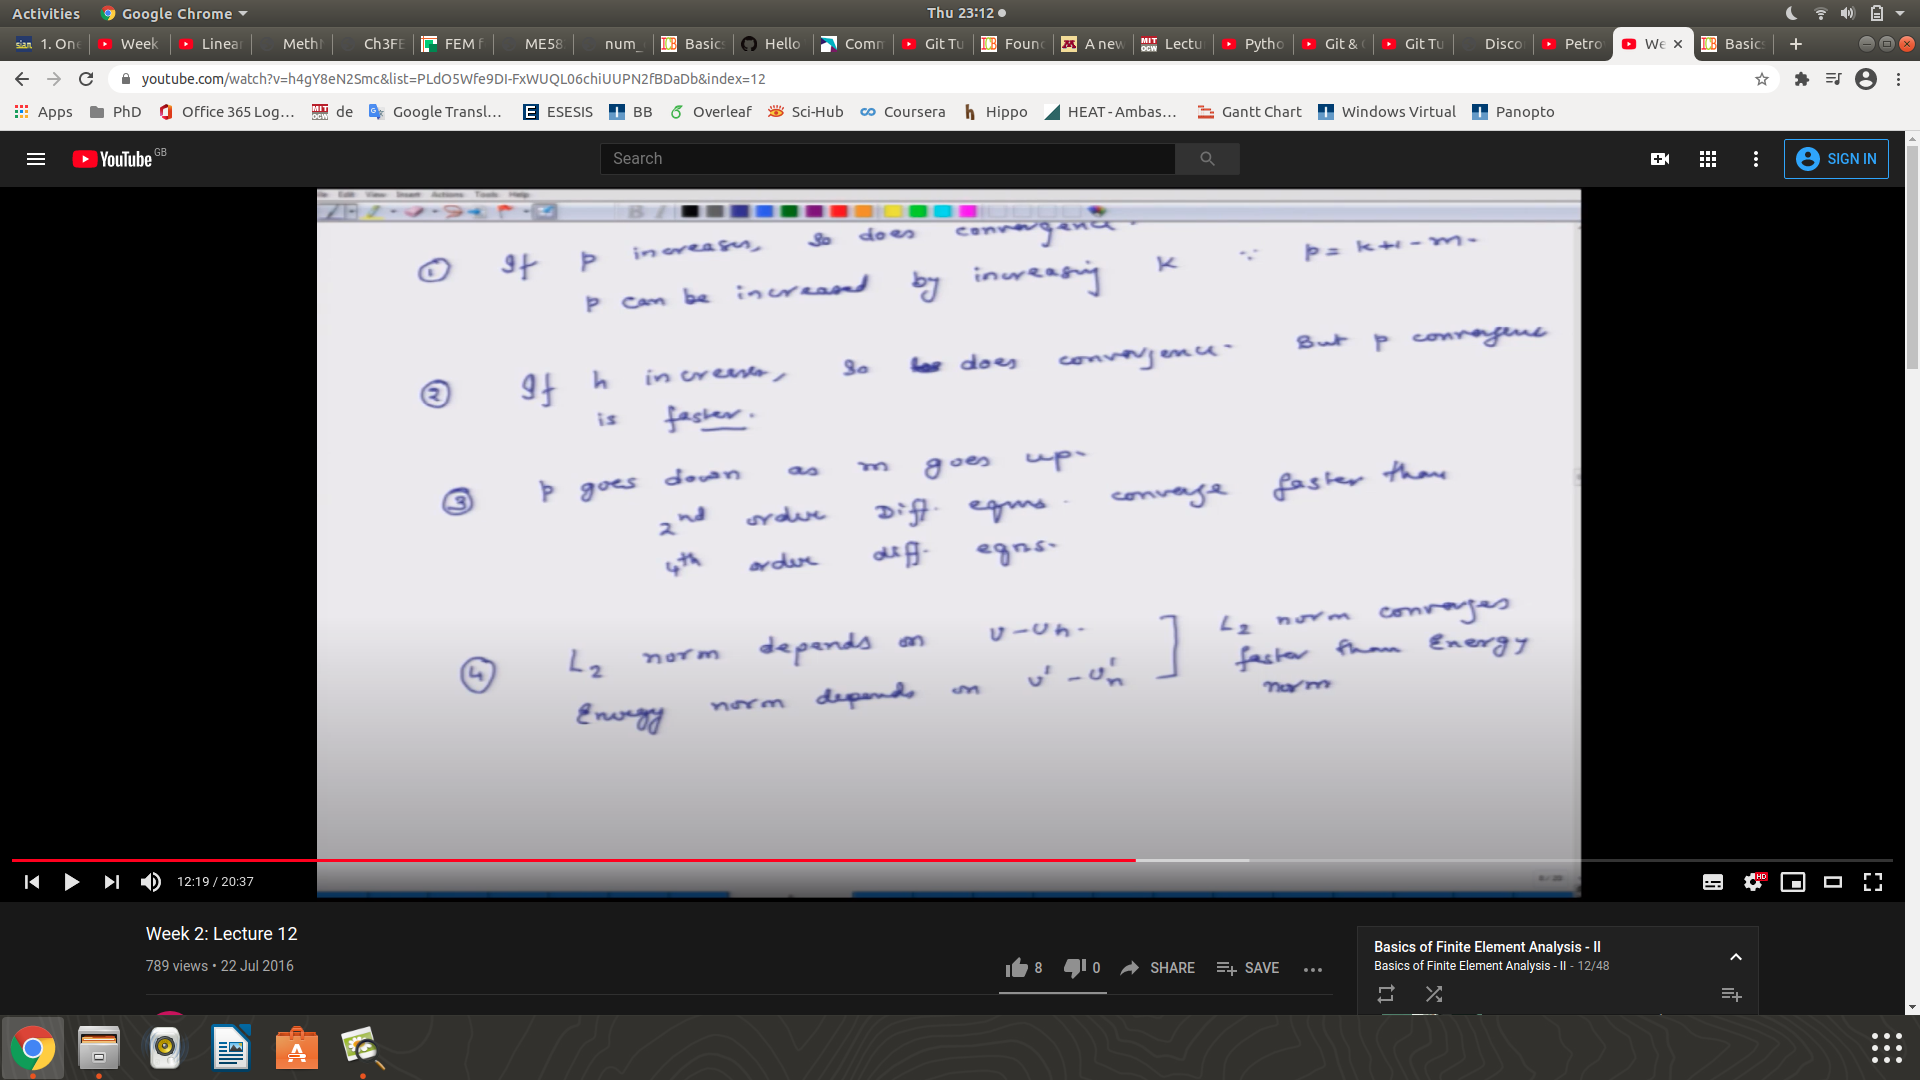 Activities Google Chrome Thu 23:12
1. One Week Linear Meth Ch3FE FEM f ME58 num_ Basics Hello Comm Git Tu Found A new Lectu Pytho Git & Git Tu Disco Petro We Basics
youtube.com/watch?v=h4gY8eN2Smc&list=PLdO5Wfe9DI-FxWUQL06chiUUPN2fBDaDb&index=12
Apps PhD Office 365 Log... de Google Transl... ESESIS BB Overleaf Sci-Hub Coursera Hippo HEAT - Ambas... Gantt Chart Windows Virtual Panopto
YouTube GB Search SIGN IN
File Edit View Insert Actions Tools Help
① If p increases, so does convergence.
p can be increased by increasing k ∵ p = k+1-m.
② If h increases, so does convergence. But p convergence
is faster.
③ p goes down as m goes up.
2nd order Diff. eqns. converge faster than
4th order diff. eqns.
④ L2 norm depends on u-uh. L2 norm converges
faster than Energy
Energy norm depends on u'-u'n norm
12:19 / 20:37
HD
Week 2: Lecture 12
789 views • 22 Jul 2016
8 0 SHARE SAVE
Basics of Finite Element Analysis - II
Basics of Finite Element Analysis - II - 12/48